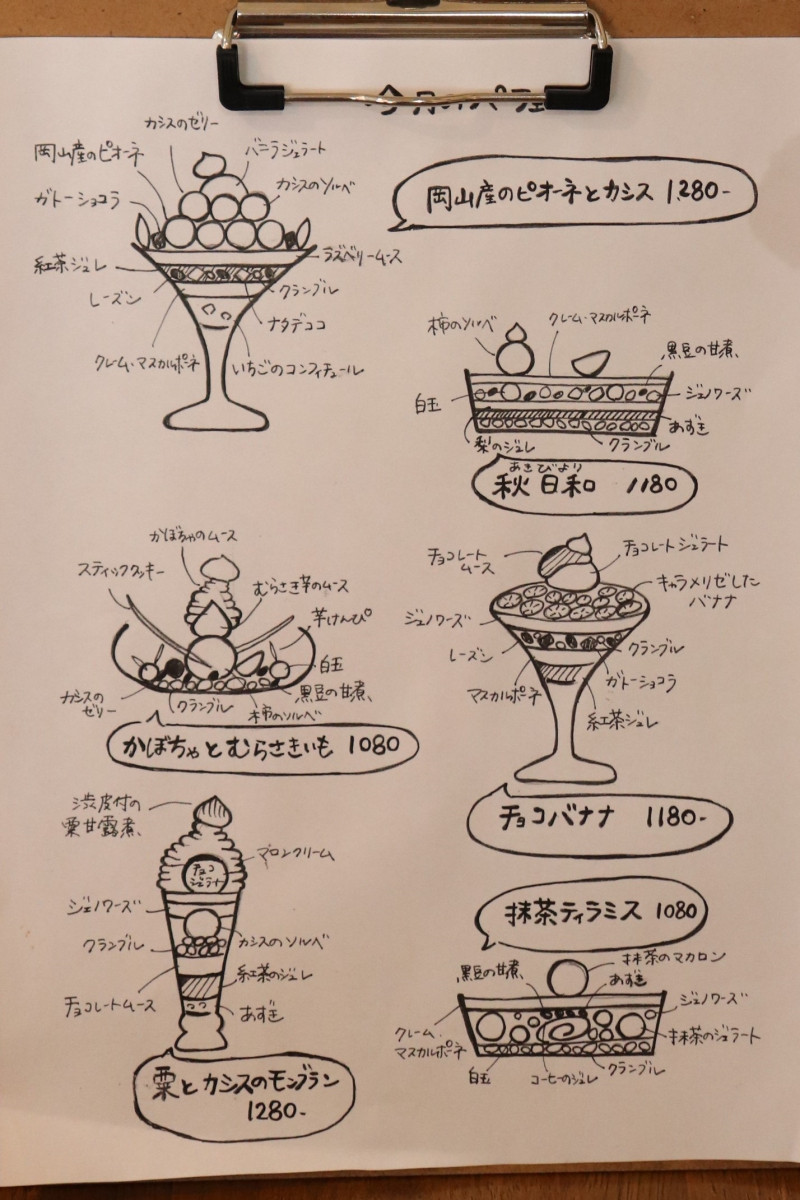 今月のパフェ
カシスのゼリー
岡山産のピオーネ
バニラジェラート
ガトーショコラ
カシスのソルベ
紅茶ジュレ
ラズベリームース
レーズン
クランブル
ナタデココ
クレーム・マスカルポーネ
いちごのコンフィチュール
岡山産のピオーネとカシス 1,280-
柿のソルベ
クレーム・マスカルポーネ
黒豆の甘煮、
白玉
ジェノワーズ
あずき
梨のジュレ
クランブル
あきびより
秋日和 1180
かぼちゃのムース
スティッククッキー
むらさき芋のムース
芋けんぴ
白玉
カシスの
ゼリー
クランブル
柿のソルベ
黒豆の甘煮、
かぼちゃとむらさきいも 1080
チョコレート
ムース
チョコレートジェラート
キャラメリゼした
バナナ
ジェノワーズ
レーズン
クランブル
マスカルポーネ
ガトーショコラ
紅茶ジュレ
チョコバナナ 1180-
渋皮付の
栗甘露煮、
マロンクリーム
チョコ
ジェラート
ジェノワーズ
クランブル
カシスのソルベ
紅茶のジュレ
チョコレートムース
あずき
栗とカシスのモンブラン
1280-
抹茶ティラミス 1080
抹茶のマカロン
黒豆の甘煮、
あずき
ジェノワーズ
クレーム・
マスカルポーネ
抹茶のジェラート
白玉
コーヒーのジュレ
クランブル